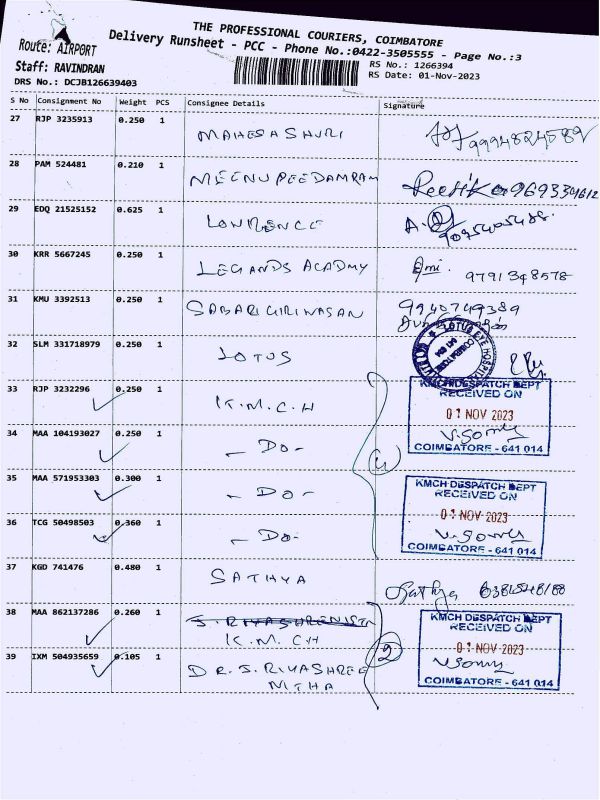 THE PROFESSIONAL COURIERS, COIMBATORE
Delivery Runsheet - PCC - Phone No.:0422-3505555 - Page No.:3
Route: AIRPORT
Staff: RAVINDRAN
DRS No.: DCJB126639403
RS No.: 1266394
RS Date: 01-Nov-2023
S No Consignment No Weight PCS Consignee Details Signature
27 RJP 3235913 0.250 1 MAHESASHURI
28 PAM 524481 0.210 1 MEENUPEEDAMRAM
29 EDQ 21525152 0.625 1 LOWRENCE A.
30 KRR 5667245 0.250 1 LEGANDS ACADMY 9791348578
31 KMU 3392513 0.250 1 SABARIGIRIWASAN 9940749389
32 SLM 331718979 0.250 1 LOTUS
LOTUS EYE HOSPITAL
COIMBATORE
641 014
33 RJP 3232296 0.250 1 K.M.C.H
KMCH DESPATCH DEPT
RECEIVED ON
01 NOV 2023
COIMBATORE - 641 014
34 MAA 104193027 0.250 1 - DO -
35 MAA 571953303 0.300 1 - DO -
KMCH DESPATCH DEPT
RECEIVED ON
01 NOV 2023
COIMBATORE - 641 014
36 TCG 50498503 0.360 1 - DO -
37 KGD 741476 0.480 1 SATHYA Sathya
38 MAA 862137286 0.260 1
K.M.CH
2
KMCH DESPATCH DEPT
RECEIVED ON
01 NOV 2023
COIMBATORE - 641 014
39 IXM 504935659 0.105 1 DR.S.RIYASHREE
NITHA